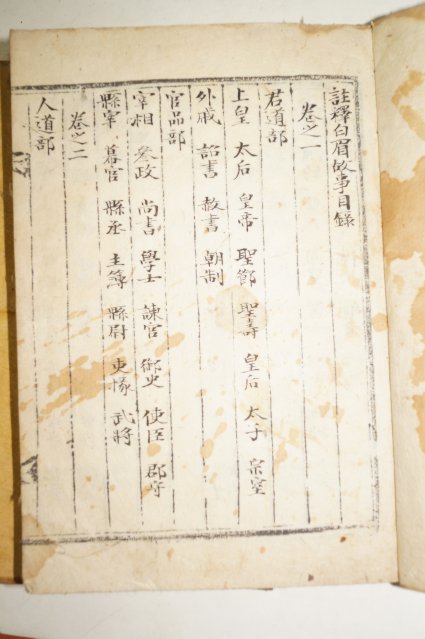 註釋白眉故事目錄
卷之一
君道部
上皇 太后 皇帝 聖節 聖壽 皇后 太子 宗室
外戚 詔書 赦書 朝制
官品部
宰相 叅政 尚書 學士 諫官 御史 使臣 郡守
縣宰 幕官 縣丞 主簿 縣尉 吏掾 武將
卷之二
人道部